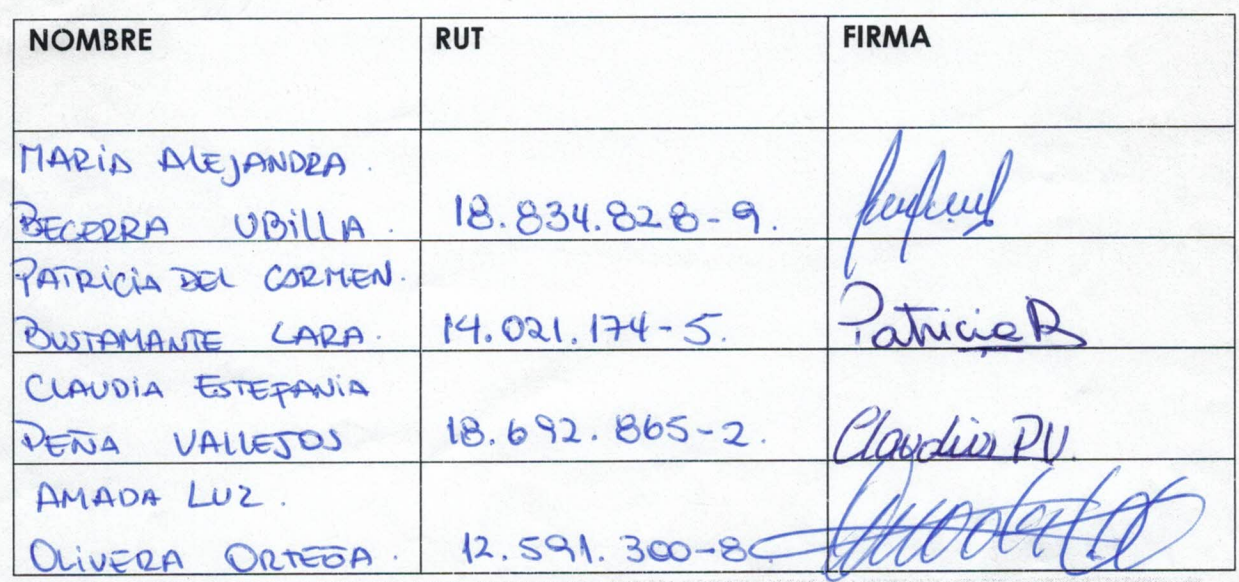 NOMBRE RUT FIRMA
MARÍA ALEJANDRA.
BECERRA UBILLA. 18.834.828-9.
PATRICIA DEL CARMEN.
BUSTAMANTE LARA. 14.021.174-5. Patricia B
CLAUDIA ESTEFANIA
PEÑA VALLEJOS 18.692.865-2. Claudia PV.
AMADA LUZ.
OLIVERA ORTEGA. 12.591.300-8